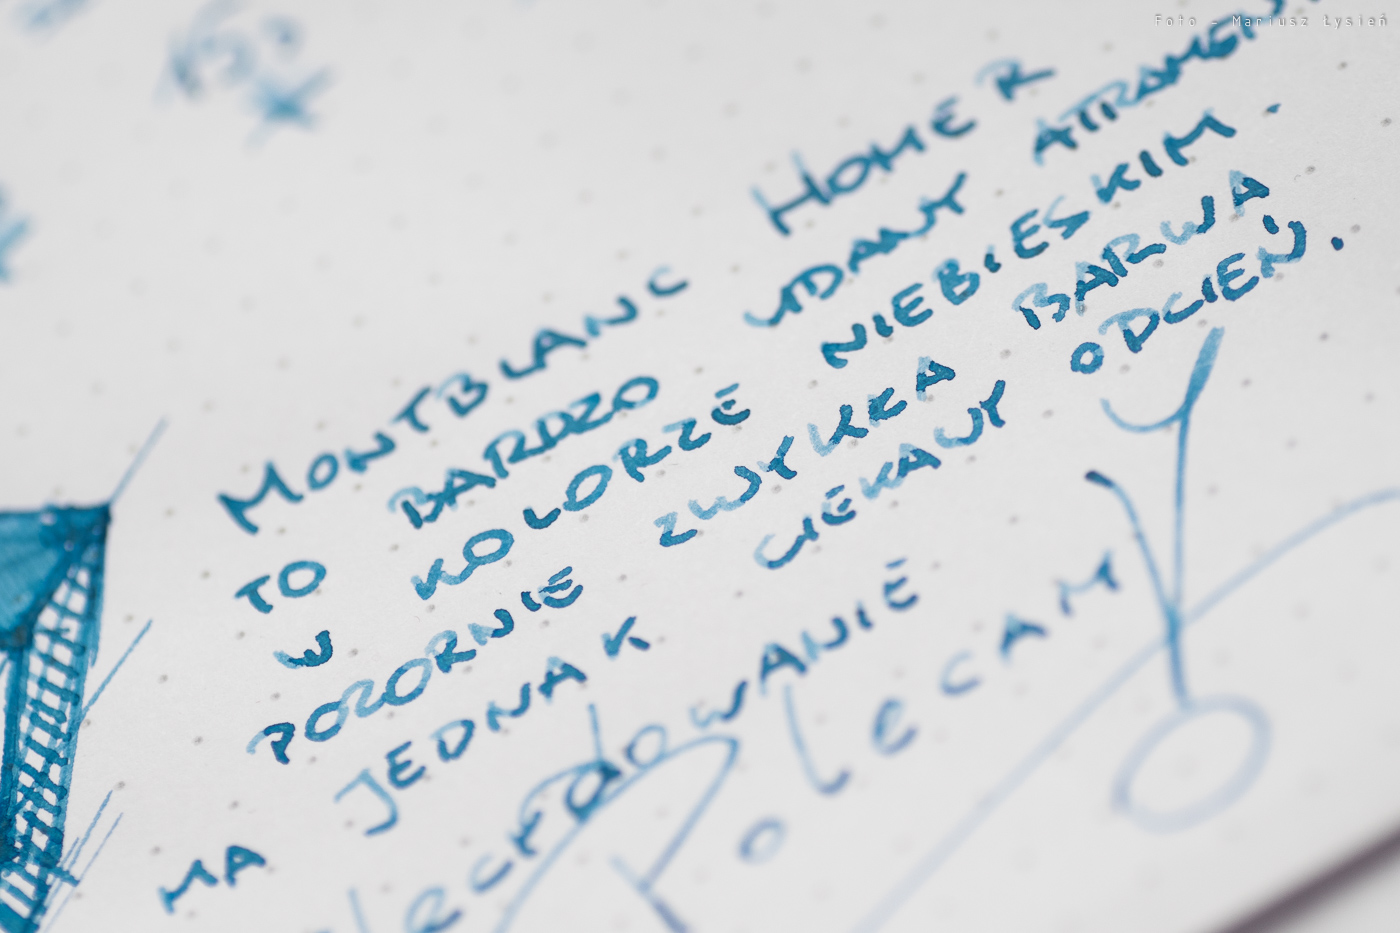 Foto - Mariusz Łysień
MONTBLANC HOMER
TO BARDZO UDANY ATRAMEN
W KOLORZE NIEBIESKIM.
POZORNIE ZWYKŁA BARWA
MA JEDNAK CIEKAWY ODCIEŃ.
POLECAM